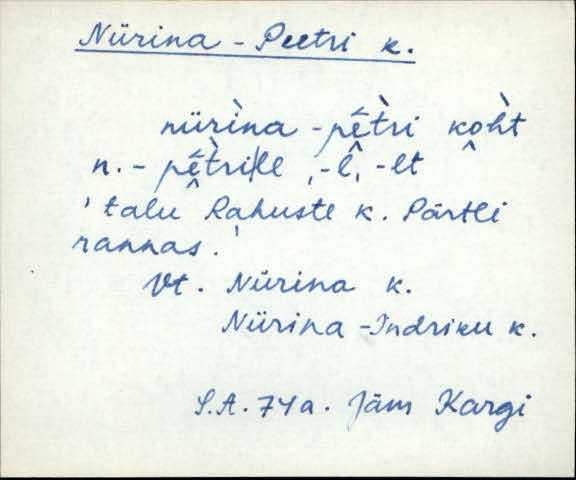 Nürina - Peetri k.
nürìna - pḗ̀tri koh̀t
n. - pḗ̀tri|le, -l̂, -lt
'talu Rahuste k. Pärtli
rannas.'
Vt. Nürina k.
Nürina - Indriku k.
S.A. 74a. Jäm Kargi